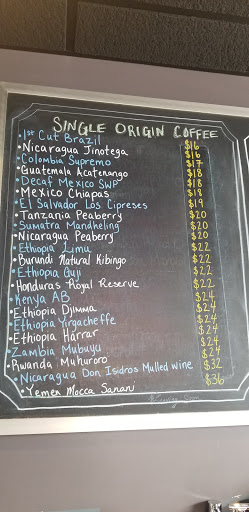 SINGLE ORIGIN COFFEE
•1st Cut Brazil $16
•Nicaragua Jinotega $16
•Colombia Supremo $17
•Guatemala Acatenango $18
•Decaf Mexico SWP $18
•Mexico Chiapas $18
•El Salvador Los Cipreses $19
•Tanzania Peaberry $20
•Sumatra Mandheling $20
•Nicaragua Peaberry $20
•Ethiopia Limu $22
•Burundi Natural Kibingo $22
•Ethiopia Guji $22
•Honduras Royal Reserve $22
•Kenya AB $24
•Ethiopia Djimma $24
•Ethiopia Yirgacheffe $24
•Ethiopia Harrar $24
•Zambia Mubuyu $24
•Rwanda Muhuroro $24
•Nicaragua Don Isidros Mulled wine $32
•Yemen Mocca Sanani $36